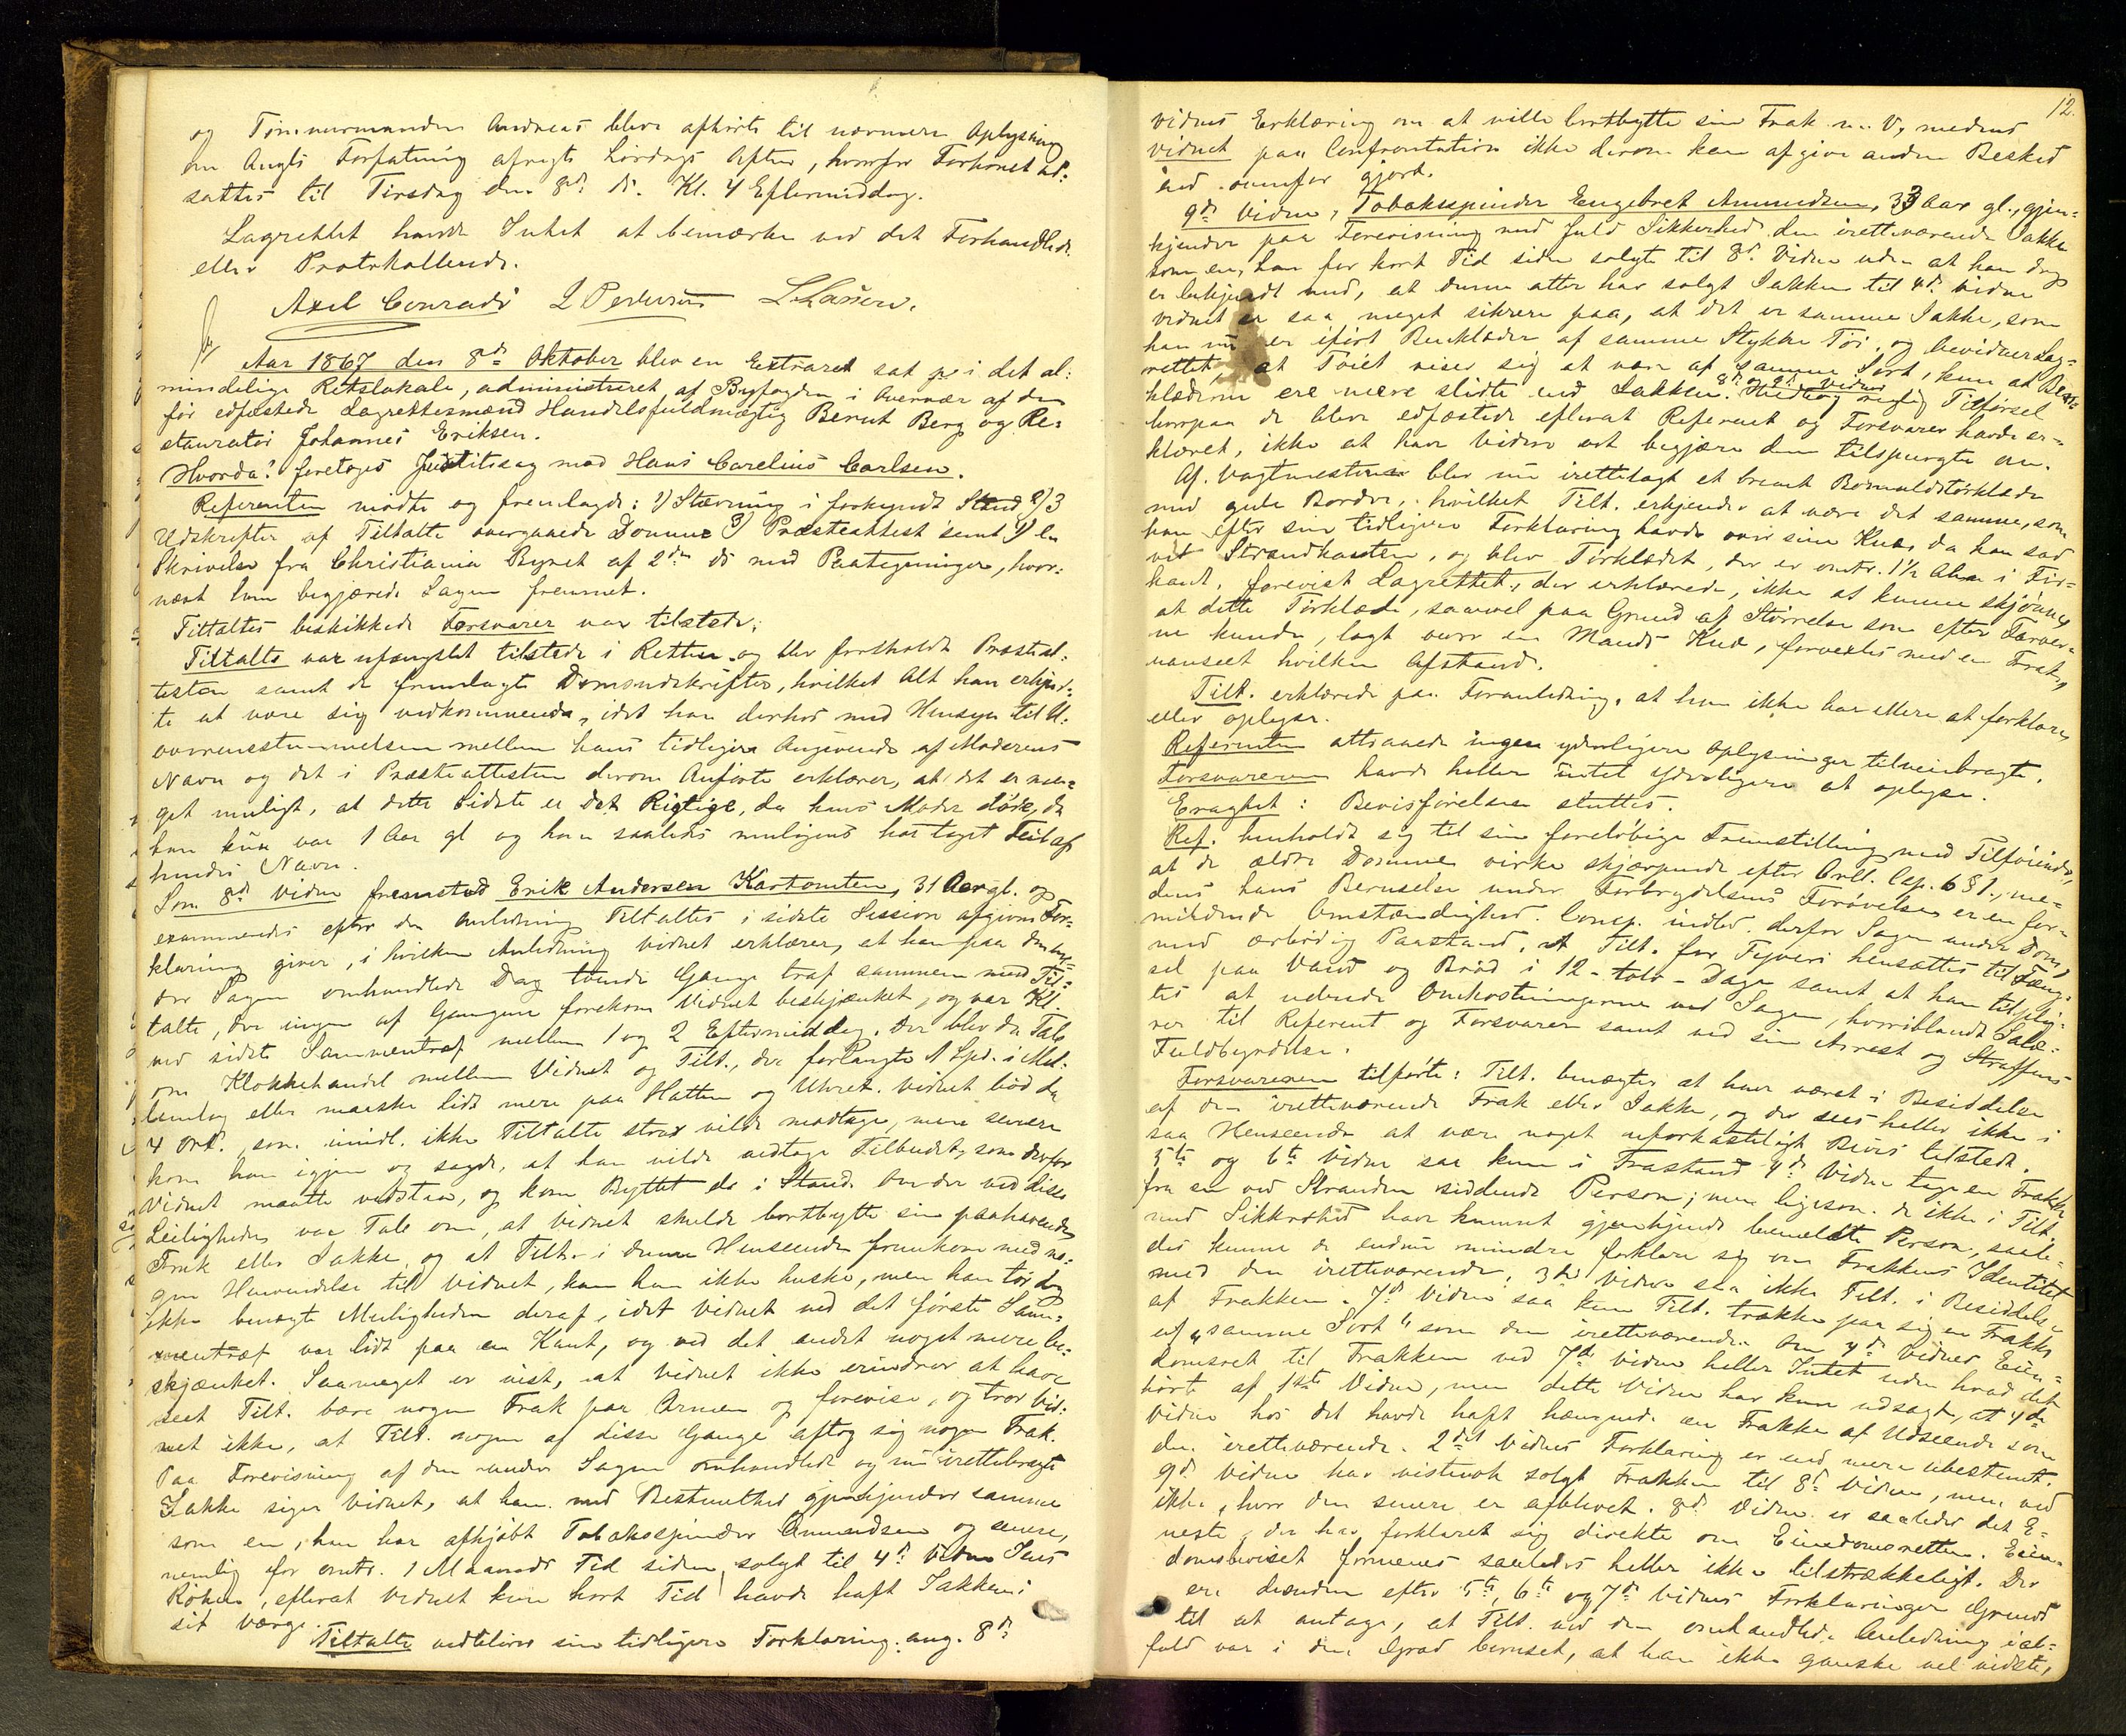 og Tømmermanden Andreas blive afhørte til nærmere Oplysning
om Angls Forfatning afvigte Lørdags Aften, hvorfor Forhøret ud-
sattes til Tirsdag den 8de ds. Kl. 4 Eftermiddag.
Lagrettet havde Intet at bemærke ved det Forhandlede
eller Protokollerede.
Axel Conradi L Pedersen L. Larsen.
Aar 1867 den 8de Oktober blev en Extraret sat paa i det al-
mindelige Retslokale, administreret af Byfogden i Overvær af de
før edfæstede Lagrettesmænd Handelsfuldmægtig Bernt Berg og Re-
stauratør Johannes Eriksen.
Hvorda: foretoges Justitssag mod Hans Carelius Carlsen.
Referenten mødte og fremlagde: 1) Stævning i forkyndt Stand 2) 3
Udskrifter af Tiltalte overgaaede Domme 3) Præsteattest samt 4) en
Skrivelse fra Christiania Byret af 2den ds med Paategninger, hvor-
næst han begjærede Sagen fremmet.
Tiltaltes beskikkede Forsvarer var tilstede.
Tiltalte var ufængslet tilstede i Retten og blev foreholdt Præsteat-
testen samt de fremlagte Domsudskrifter, hvilket Alt han erkjend-
te at være sig vedkommende, idet han derhos med Hensyn til U-
overensstemmelsen mellem hans tidligere Angivende af Moderens
Navn og det i Præsteattesten derom Anførte erklærer, at det er me-
get muligt, at dette Sidste er det Rigtige, da hans Moder døde, da
han kun var 1 Aar gl og han saaledes muligens har taget Feil af
hendes Navn.
Som 8de Vidne fremstod Erik Andersen Kartomten, 31 Aar gl. og
examineredes efter den Anledning Tiltaltes i sidste Session afgivne For-
klaring giver, i hvilken Anledning Vidnet erklærer, at han paa den un-
der Sagen omhandlede Dag tvende Gange traf sammen med Til-
talte, der ingen af Gangene forekom Vidnet beskjænket, og var Kl.
ved sidste Sammentræf mellem 1 og 2 Eftermiddag. Der blev da Tale
om Klokkehandel mellem Vidnet og Tilt., der forlangte 1 Spd. i Mel-
lemlag eller maaske lidt mere paa Hatten og Uhret. Vidnet bød da
4 Ort, som imidl. ikke Tiltalte strax vilde modtage, men senere
kom han igjen og sagde, at han vilde modtage Tilbudet, som derfor
Vidnet maatte vedstaa, og kom Byttet da i Stand. Om der ved disse
Leiligheder var Tale om, at Vidnet skulde bortbytte sin paahavende
Frak eller Jakke, og at Tilt. i denne Henseende fremkom med no-
gen Henvendelse til Vidnet, kan han ikke huske, men han tør dog
ikke benægte Muligheden deraf, idet Vidnet ved det første Sam-
mentræf var lidt paa en Kant, og ved det andet noget mere be-
skjænket. Saameget er vist, at Vidnet ikke erindrer at have
seet Tilt. bære nogen Frak paa Armen og forevise, og tror Vid-
net ikke, at Tilt. nogen af disse Gange aftog sig nogen Frak.
Paa Forevisning af den under Sagen omhandlede og nu iretteboragte
Jakke siger Vidnet, at han med Bestemthed gjenkjender samme
som en, han har afkjøbt Tobaksspinder Amundsen og senere,
nemlig for omtr. 1 Maaneds Tid siden, solgt til 4de Vidne Jens
Røken, efterat Vidnet kun kort Tid havde haft Jakken i
sit Værge.
Tiltalte vedbliver sin tidligere Forklaring ang. 8de
12.
Vidnes Erklæring om at ville bortbytte sin Frak m. V., medens
Vidnet paa Confrontation ikke derom kan afgive anden Besked
end ovenfor gjort.
9de Vidne, Tobaksspinder Engebret Amundsen, 33 Aar gl., gjen-
kjender paa Forevisning med fuld Sikkerhed den iretteværende Jakke
som en, han for kort Tid siden solgte til 8de Vidne uden at han dog
er bekjendt med, at denne atter har solgt Jakken til 4de Vidne
Vidnet er saa meget sikrere paa, at det er samme Jakke, som
han nu er iført Benklæder af samme Stykke Tøi, og bevidner Lag-
rettet at Tøiet viser sig at være af samme Sort, kun at Ben-
klæderne ere mere slidte end Jakken. 8de og 9de Vidner Tilførsel
hvorpaa de bleve edfæstede efterat Referent og Forsvarer havde er-
klæret, ikke at have videre at begjære dem tilspurgte om.
Af Vagtmesteren blev nu irettelagt et brunt Bomuldstørklæde
med gule Bordre, hvilket Tilt. erkjender at være det samme, som
han efter sin tidligere Forklaring havde over sine Knæ, da han sad
ved Strandkanten, og blev Tørklædet, der er omtr. 1½ Alen i Fir-
kant, forevist Lagrettet, der erklærede, ikke at kunne skjønne,
at dette Tørklæde, saavel paa Grund af Størrelse som efter Farver-
ne kunde, lagt over en Mands Knæ, forvexles med en Frak,
uanseet hvilken Afstand.
Tilt. erklærede paa Foranledning, at han ikke har Mere at forklare
eller oplyse.
Referenten attraaede ingen yderligere Oplysninger tilveiebragte.
Forsvareren havde heller intet yderligere at oplyse.
Eragtet: Bevisførelsen sluttes.
Ref. henholdt sig til sin foreløbige Fremstilling med Tilføiende,
at de ældre Domme virke skjærpende efter Crll. Cap. 6 § 1., me-
dens hans Beruselse under Forbrydelsens Forøvelse er en for-
mildende Omstændighed. Comp. indlod derfor Sagen under Dom,
med ærbødig Paastand, at Tilt. for Tyveri hensættes til Fæng-
sel paa Vand og Brød i 12 - tolv - Dage samt at han tilplig-
tes at udrede Omkostningerne ved Sagen, hvoriblandt Salæ-
rer til Referent og Forsvarer samt ved sin Arrest og Straffens
Fuldbyrdelse.
Forsvareren tilførte: Tilt. benægter at have været i Besiddelse
af den iretteværende Frak eller Jakke, og der sees heller ikke i
saa Henseende at være noget uforkasteligt Bevis tilstede.
5te og 6te Vidne saa kun i Frastand 4de Vidne tage en Frakke
fra en ved Stranden siddende Person; men ligesom de ikke i Tilt.
med Sikkerhed have kunnet gjenkjende bemeldte Person, saale-
des kunne de endnu mindre forklare sig om Frakkens Identitet
med den iretteværende. 3die Vidne saa ikke Tilt. i Besiddelse
af Frakken. 7de Vidne saa kun Tilt. trække paa sig en Frakke
af "samme Sort" som den iretteværende. Om 4de Vidnes Eien-
domsret til Frakken ved 7de Vidne heller Intet uden hvad det
hørte af 1ste Vidne, men dette Vidne har kun udsagt, at 4de
Vidne hos det havde haft hængende en Frakke af Udseende som
den iretteværende. 2det Vidnes Forklaring er end mere ubestemt.
9de Vidne har vistnok solgt Frakken til 8de Vidne, men ved
ikke, hvor den senere er afbleven. 8de Vidne er saaledes det E-
neste, der har forklaret sig direkte om Eiendomsretten. Eien-
domsbeviset formenes saaledes heller ikke tilstrækkeligt. Der
er desuden efter 5te, 6te og 7de Vidnes Forklaringer Grund
til at antage, at Tilt. ved den omhandlede Anledning ial-
fald var i den Grad beruset, at han ikke ganske vel vidste,